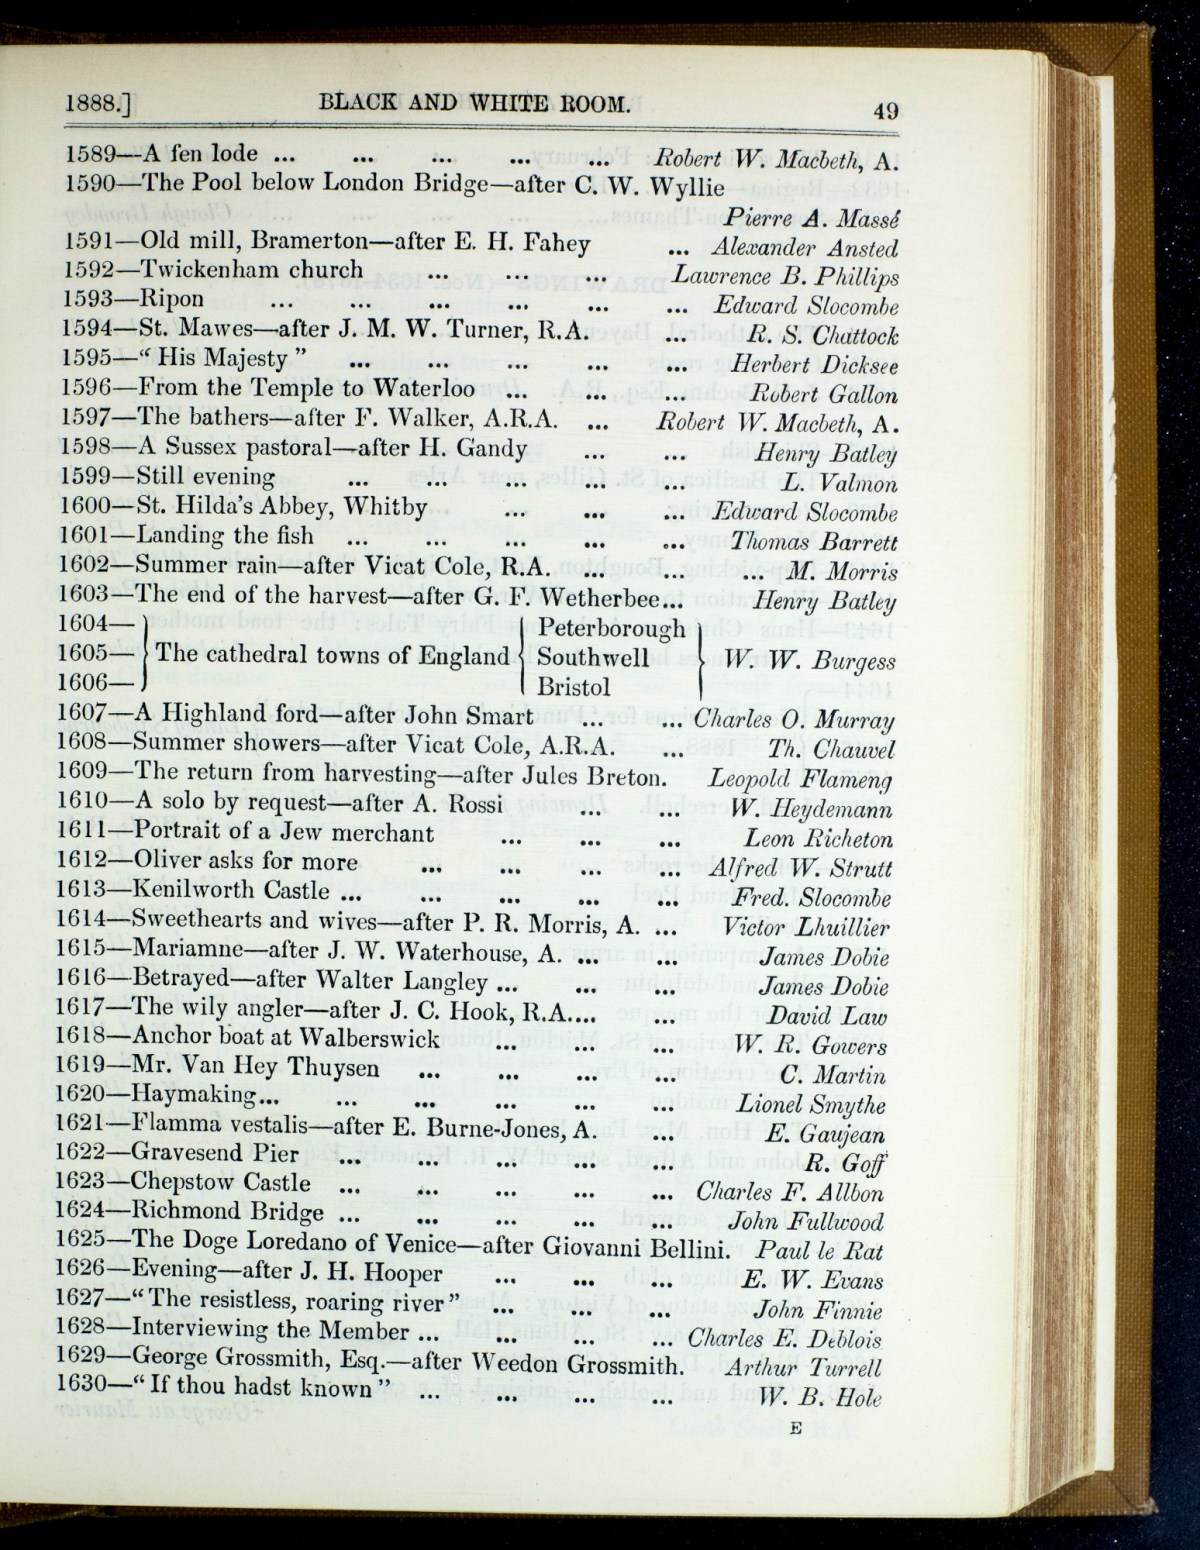 1888.] BLACK AND WHITE ROOM. 49
1589—A fen lode ... ... ... ... ... Robert W. Macbeth, A.
1590—The Pool below London Bridge—after C. W. Wyllie
Pierre A. Massé
1591—Old mill, Bramerton—after E. H. Fahey ... Alexander Ansted
1592—Twickenham church ... ... ... Lawrence B. Phillips
1593—Ripon ... ... ... ... ... ... Edward Slocombe
1594—St. Mawes—after J. M. W. Turner, R.A. ... R. S. Chattock
1595—“ His Majesty ” ... ... ... ... ... Herbert Dicksee
1596—From the Temple to Waterloo ... ... ... Robert Gallon
1597—The bathers—after F. Walker, A.R.A. ... Robert W. Macbeth, A.
1598—A Sussex pastoral—after H. Gandy ... ... Henry Batley
1599—Still evening ... ... ... ... ... L. Valmon
1600—St. Hilda’s Abbey, Whitby ... ... ... Edward Slocombe
1601—Landing the fish ... ... ... ... ... Thomas Barrett
1602—Summer rain—after Vicat Cole, R.A. ... ... ... M. Morris
1603—The end of the harvest—after G. F. Wetherbee... Henry Batley
1604— Peterborough
1605— The cathedral towns of England Southwell W. W. Burgess
1606— Bristol
1607—A Highland ford—after John Smart ... ... Charles O. Murray
1608—Summer showers—after Vicat Cole, A.R.A. ... Th. Chauvel
1609—The return from harvesting—after Jules Breton. Leopold Flameng
1610—A solo by request—after A. Rossi ... ... W. Heydemann
1611—Portrait of a Jew merchant ... ... ... Leon Richeton
1612—Oliver asks for more ... ... ... ... Alfred W. Strutt
1613—Kenilworth Castle ... ... ... ... ... Fred. Slocombe
1614—Sweethearts and wives—after P. R. Morris, A. ... Victor Lhuillier
1615—Mariamne—after J. W. Waterhouse, A. ... ... James Dobie
1616—Betrayed—after Walter Langley ... ... ... James Dobie
1617—The wily angler—after J. C. Hook, R.A.... ... David Law
1618—Anchor boat at Walberswick ... ... ... W. R. Gowers
1619—Mr. Van Hey Thuysen ... ... ... ... C. Martin
1620—Haymaking... ... ... ... ... ... Lionel Smythe
1621—Flamma vestalis—after E. Burne-Jones, A. ... E. Gaujean
1622—Gravesend Pier ... ... ... ... ... R. Goff
1623—Chepstow Castle ... ... ... ... ... Charles F. Allbon
1624—Richmond Bridge ... ... ... ... ... John Fullwood
1625—The Doge Loredano of Venice—after Giovanni Bellini. Paul le Rat
1626—Evening—after J. H. Hooper ... ... ... E. W. Evans
1627—“ The resistless, roaring river ” ... ... ... John Finnie
1628—Interviewing the Member ... ... ... ... Charles E. Deblois
1629—George Grossmith, Esq.—after Weedon Grossmith. Arthur Turrell
1630—“ If thou hadst known ” ... ... ... ... W. B. Hole
E